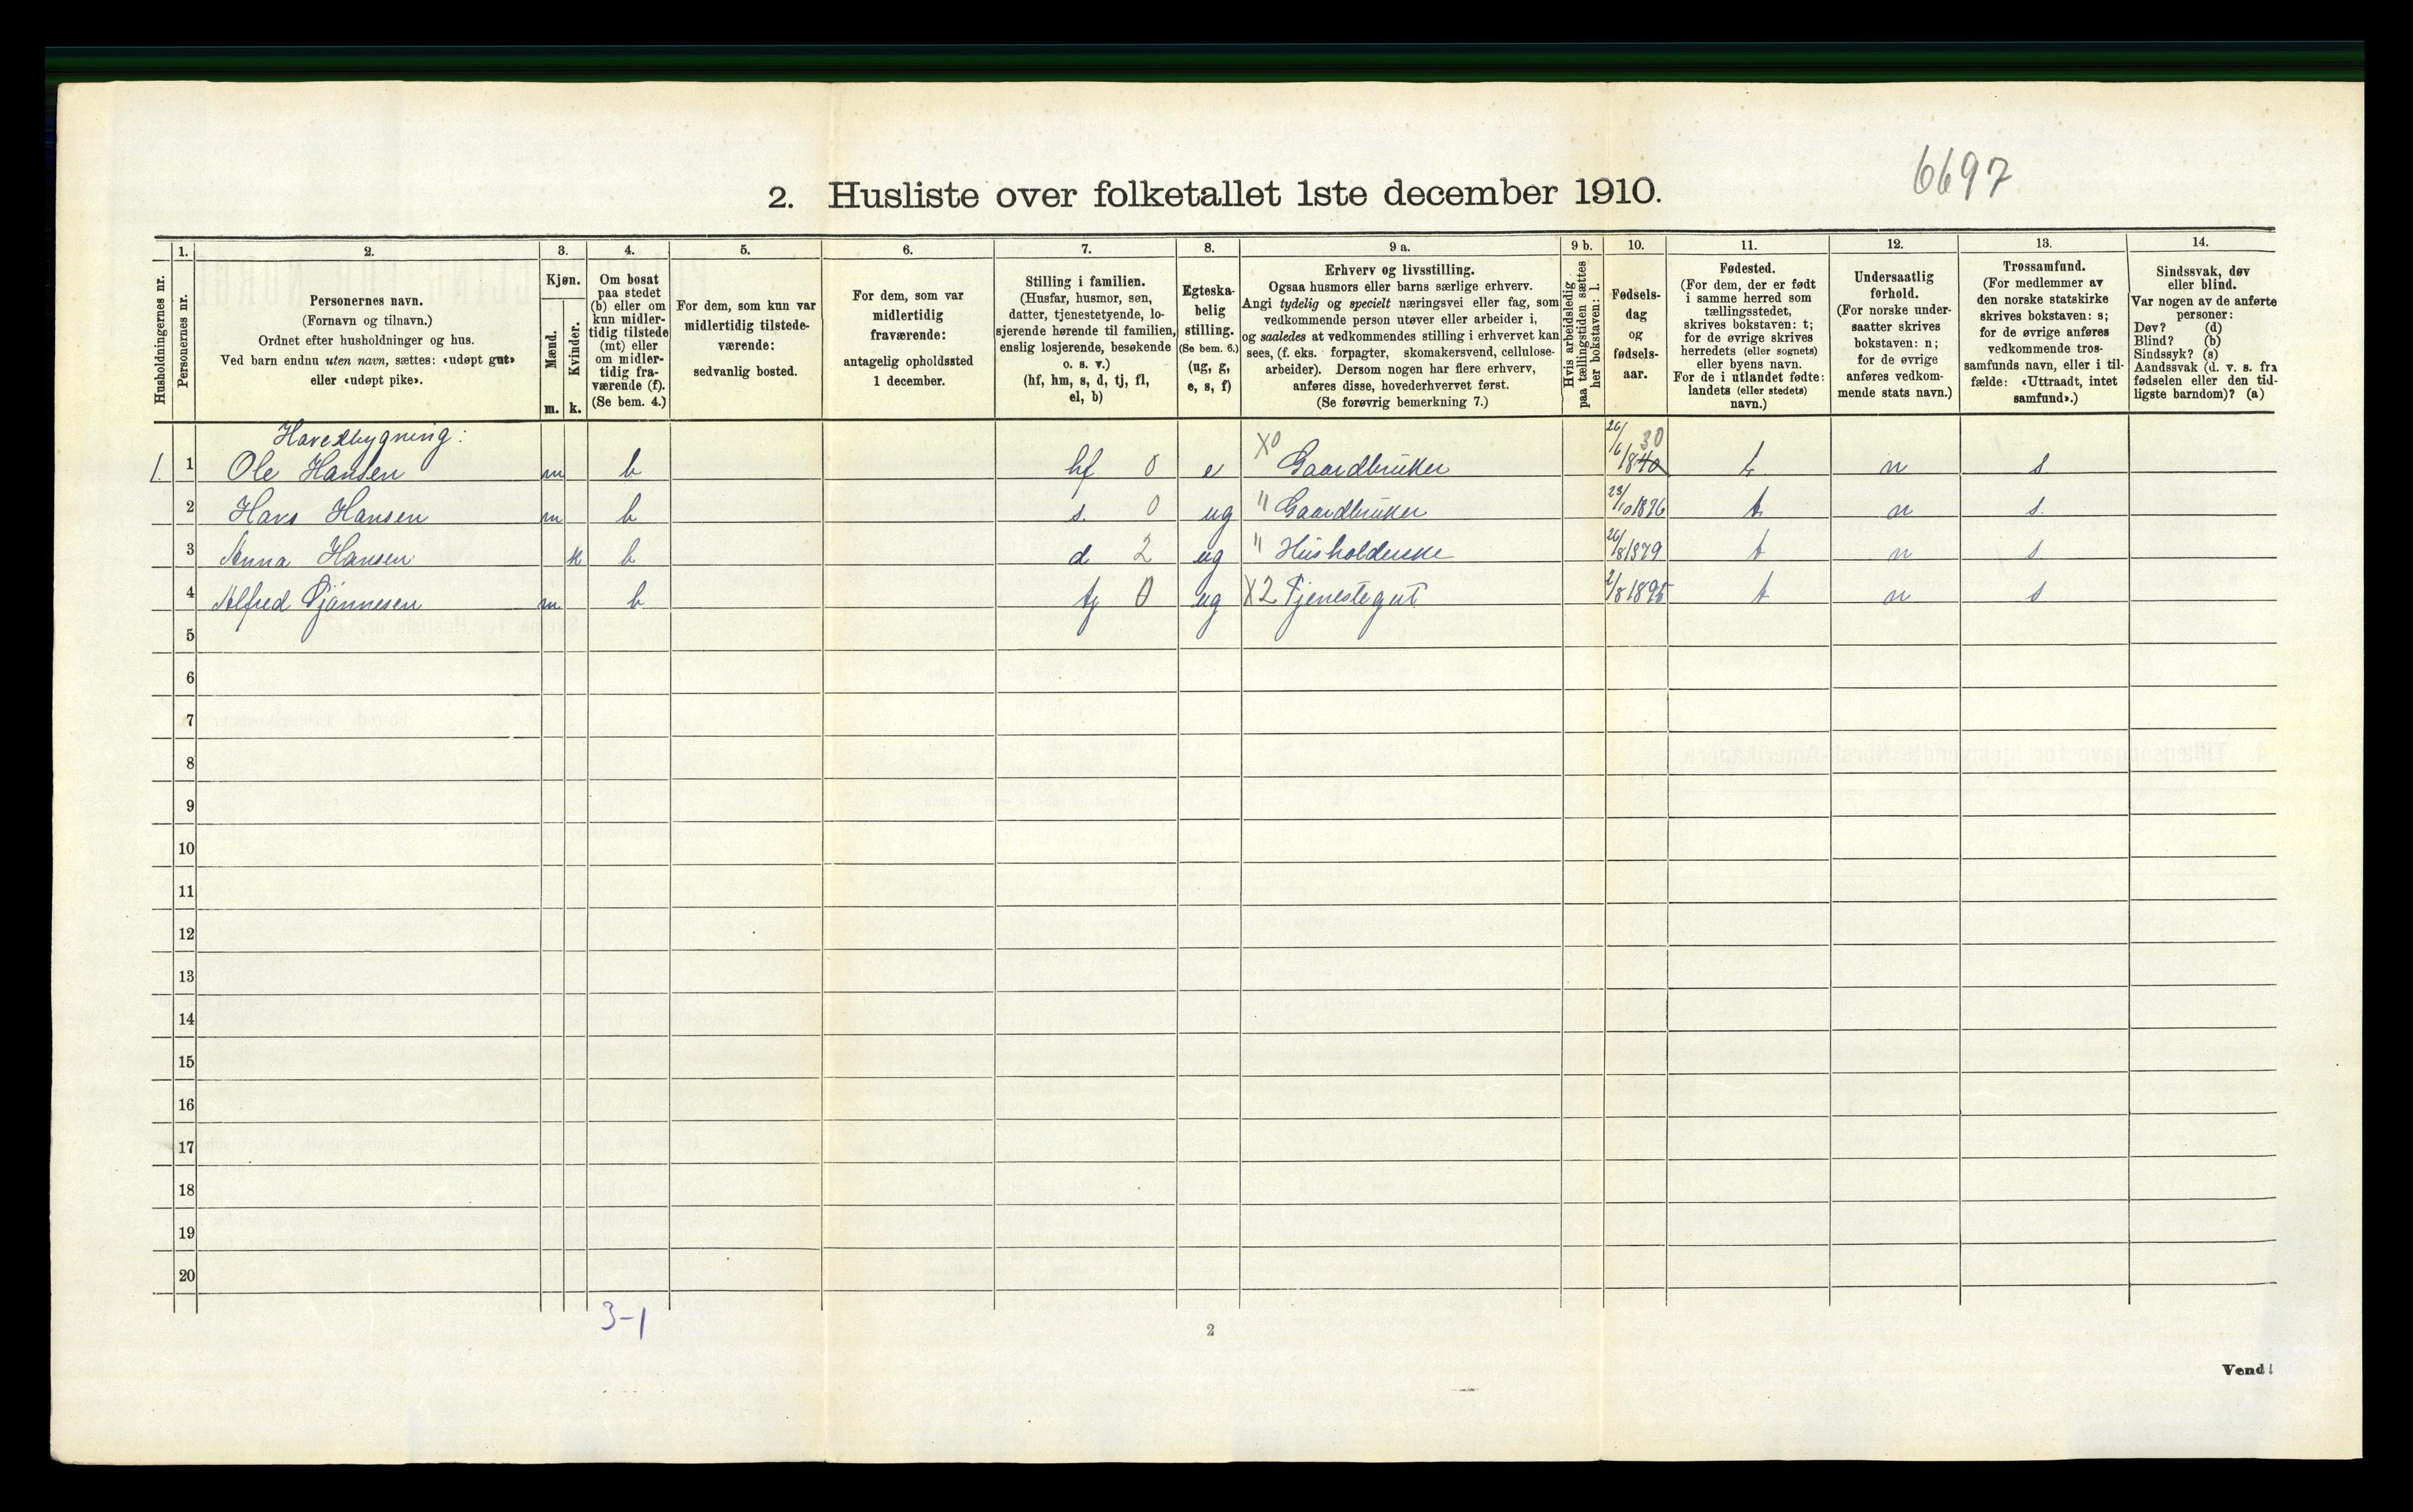 6697
2. Husliste over folketallet 1ste december 1910.
Husholdningernes nr.
1.
Personernes nr.
2.
Personernes navn.
(Fornavn og tilnavn.)
Ordnet efter husholdninger og hus.
Ved barn endnu uten navn, sættes: «udøpt gut»
eller «udøpt pike».
3.
Kjøn.
Mænd.
Kvinder.
m. k.
4.
Om bosat
paa stedet
(b) eller om
kun midler-
tidig tilstede
(mt) eller
om midler-
tidig fra-
værende (f).
(Se bem. 4.)
5.
For dem, som kun var
midlertidig tilstede-
værende:
sedvanlig bosted.
6.
For dem, som var
midlertidig
fraværende:
antagelig opholdssted
1 december.
7.
Stilling i familien.
(Husfar, husmor, søn,
datter, tjenestetyende, lo-
sjerende hørende til familien,
enslig losjerende, besøkende
o. s. v.)
(hf, hm, s, d, tj, fl,
el, b)
8.
Egteska-
belig
stilling.
(Se bem. 6.)
(ug, g,
e, s, f)
9 a.
Erhverv og livsstilling.
Ogsaa husmors eller barns særlige erhverv.
Angi tydelig og specielt næringsvei eller fag, som
vedkommende person utøver eller arbeider i,
og saaledes at vedkommendes stilling i erhvervet kan
sees, (f. eks. forpagter, skomakersvend, cellulose-
arbeider). Dersom nogen har flere erhverv,
anføres disse, hovederhvervet først.
(Se forøvrig bemerkning 7.)
9 b.
Hvis arbeidsledig
paa tællingstiden sættes
her bokstaven: l.
10.
Fødsels-
dag
og
fødsels-
aar.
11.
Fødested.
(For dem, der er født
i samme herred som
tællingsstedet,
skrives bokstaven: t;
for de øvrige skrives
herredets (eller sognets)
eller byens navn.
For de i utlandet fødte:
landets (eller stedets)
navn.)
12.
Undersaatlig
forhold.
(For norske under-
saatter skrives
bokstaven: n;
for de øvrige
anføres vedkom-
mende stats navn.)
13.
Trossamfund.
(For medlemmer av
den norske statskirke
skrives bokstaven: s;
for de øvrige anføres
vedkommende tros-
samfunds navn, eller i til-
fælde: «Uttraadt, intet
samfund».)
14.
Sindssvak, døv
eller blind.
Var nogen av de anførte
personer:
Døv? (d)
Blind? (b)
Sindssyk? (s)
Aandssvak (d. v. s. fra
fødselen eller den tid-
ligste barndom)? (a)
Hovedbygning:
1. 1 Ole Hansen m b hf 0 e X0 Gaardbruker 26/6 1840 30 t n s
2 Hans Hansen m b s. 0 ug " Gaardbruker 23/10 1876 t n s.
3 Anna Hansen k b d 2 ug " Husholderske 26/8 1879 t n s.
4 Alfred m b tj 0 ug X2 Tjenestegut 2/8 1895 t n s
5
6
7
8
9
10
11
12
13
14
15
16
17
18
19
20
3-1
2
Vend!